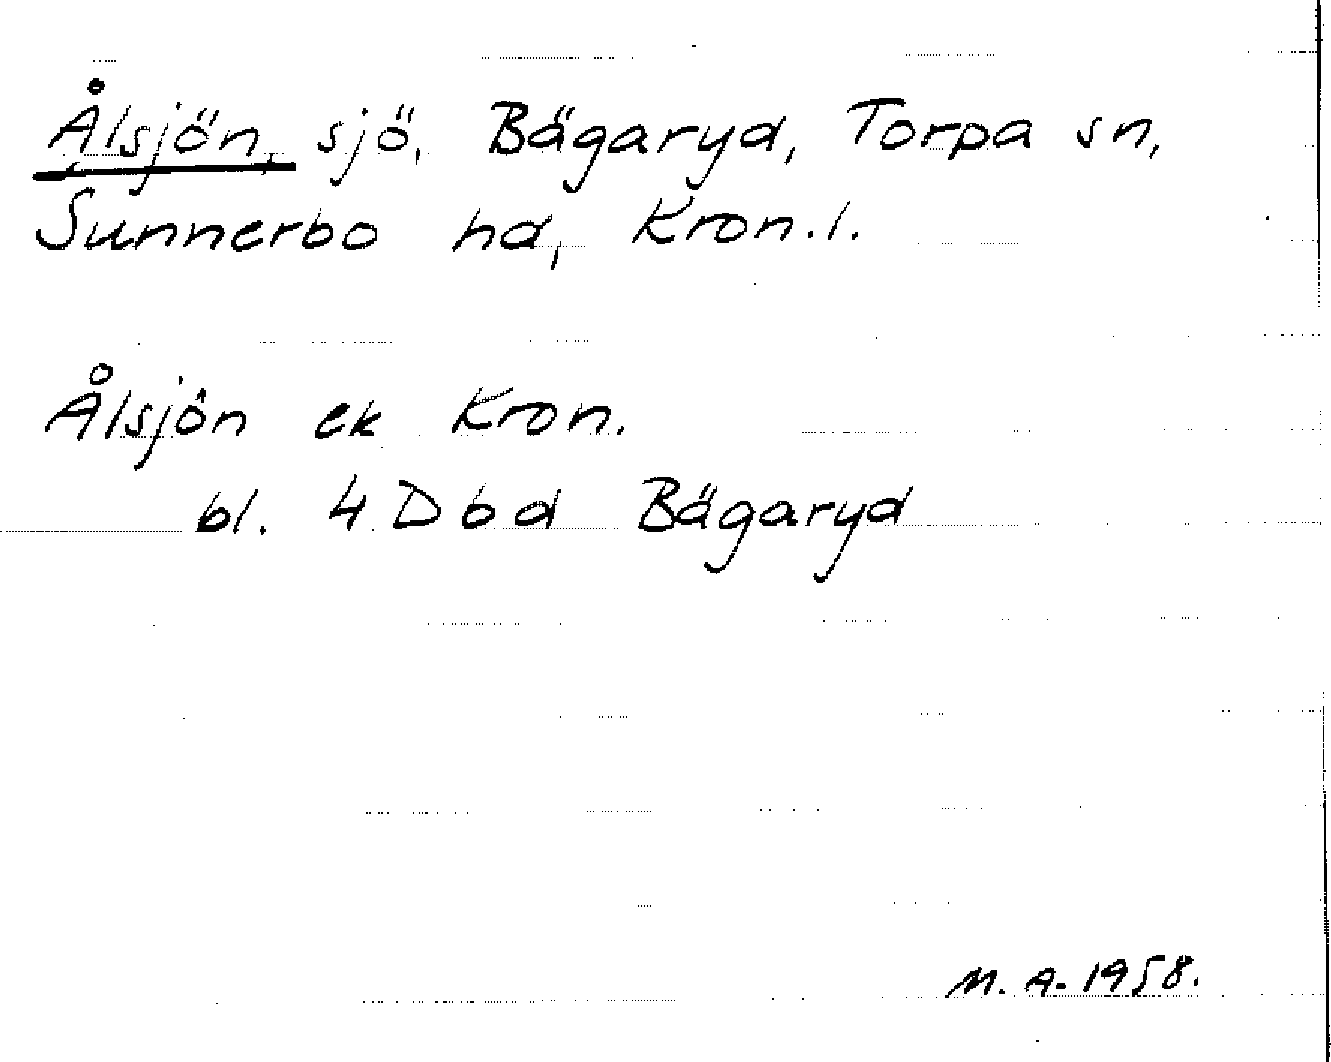 Ålsjön, sjö, Bägaryd, Torpa sn,
Sunnerbo hd, Kron.l.
Ålsjön ek Kron.
bl. 4 D b d Bägaryd
M. A. 1958.